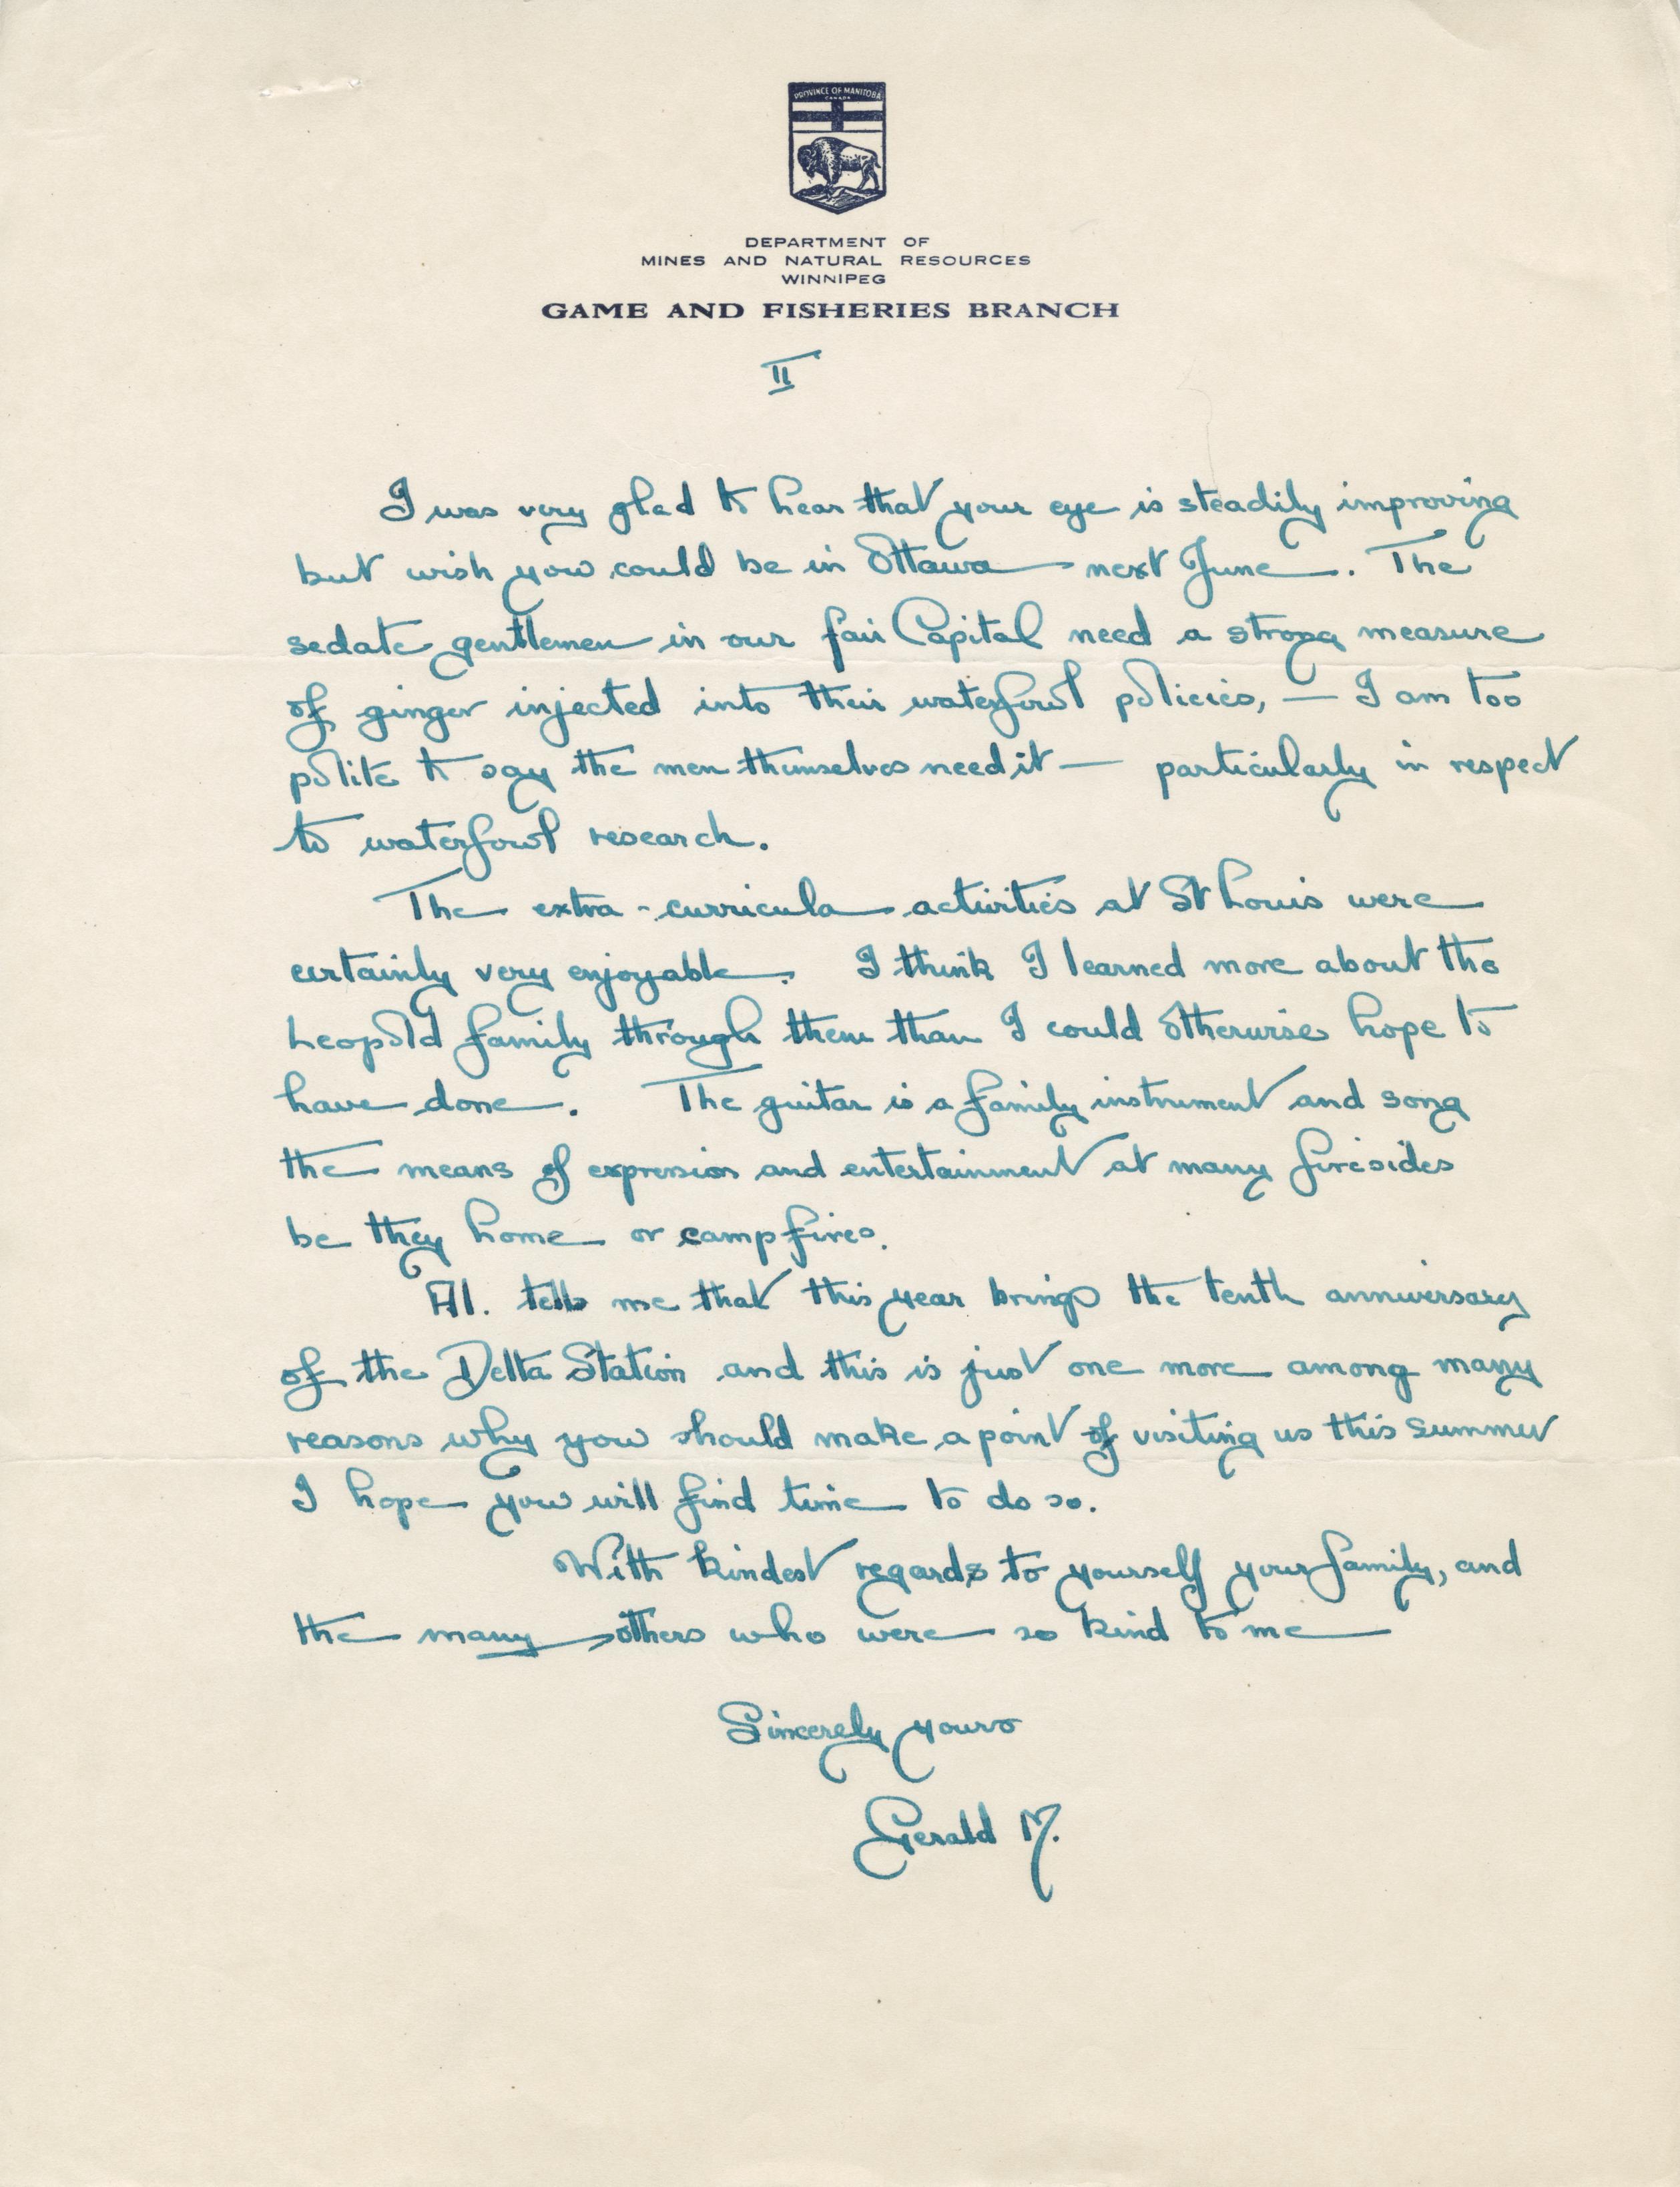 PROVINCE OF MANITOBA
CANADA
DEPARTMENT OF
MINES AND NATURAL RESOURCES
WINNIPEG
GAME AND FISHERIES BRANCH
II
I was very glad to hear that your eye is steadily improving
but wish you could be in Ottawa next June. The
sedate gentlemen in our fair Capital need a strong measure
of ginger injected into their waterfowl policies, — I am too
polite to say the men themselves need it — particularly in respect
to waterfowl research.
The extra-curricula activities at St Louis were
certainly very enjoyable. I think I learned more about the
Leopold family through them than I could otherwise hope to
have done. The guitar is a family instrument and song
the means of expression and entertainment at many firesides
be they home or campfires.
Al. tells me that this year brings the tenth anniversary
of the Delta Station and this is just one more among many
reasons why you should make a point of visiting us this summer
I hope you will find time to do so.
With kindest regards to yourself your family, and
the many others who were so kind to me
Sincerely yours
Gerald M.